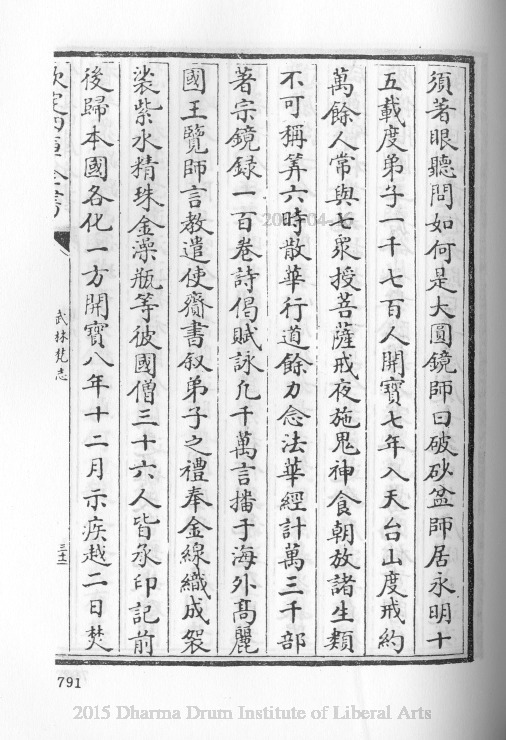 須著眼聽問如何是大圓鏡師曰破砂盆師居永明十
五載度弟子一千七百人開寶七年入天台山度戒約
萬餘人常與七衆授菩薩戒夜施鬼神食朝放諸生類
不可稱筭六時散華行道餘力念法華經計萬三千部
著宗鏡録一百卷詩偈賦詠凡千萬言播于海外高麗
國王覽師言教遣使齎書叙弟子之禮奉金線織成袈
裟紫水精珠金澡瓶等彼國僧三十六人皆承印記前
後歸本國各化一方開寶八年十二月示疾越二日焚
欽定四庫全書
武林梵志
791
2015 Dharma Drum Institute of Liberal Arts